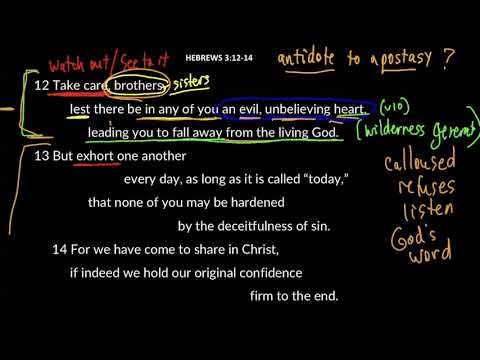 watch out/See to it
HEBREWS 3:12-14
antidote to apostasy ?
12 Take care, brothers, sisters
lest there be in any of you an evil, unbelieving heart, (v10)
leading you to fall away from the living God. (wilderness generat)
13 But exhort one another
every day, as long as it is called “today,”
that none of you may be hardened
by the deceitfulness of sin.
14 For we have come to share in Christ,
if indeed we hold our original confidence
firm to the end.
calloused
refuses
listen
God's
word